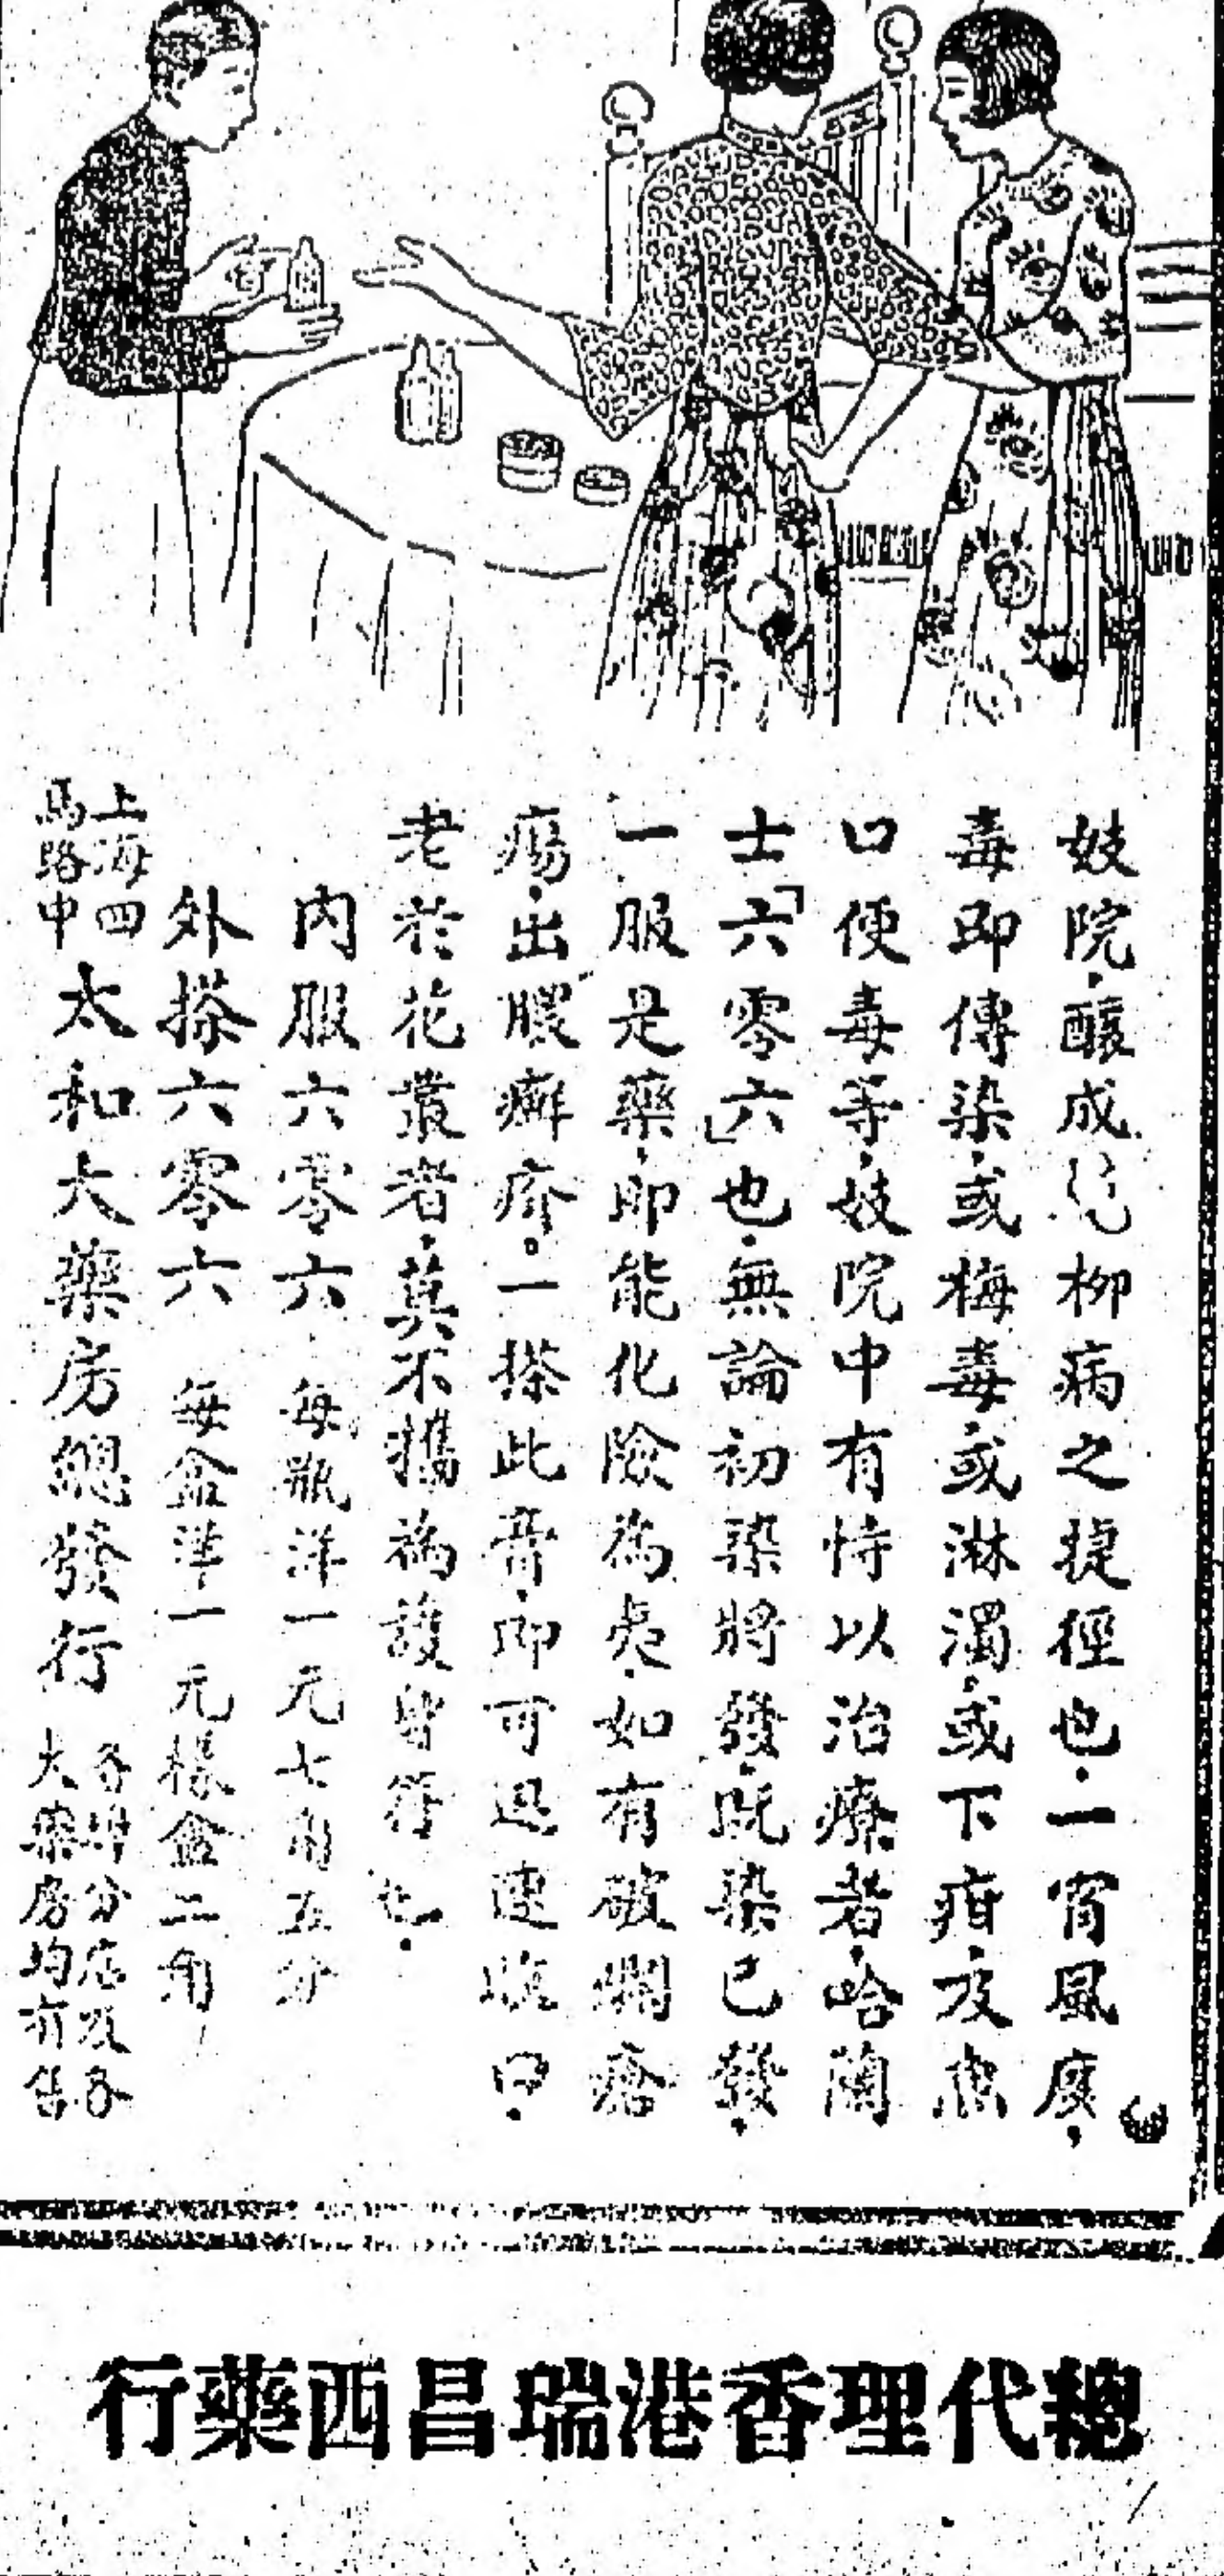 妓院，釀成柳病之捷徑也．一宵風度，
毒即傳染，或梅毒，或淋濁，或下疳，及魚
口便毒等，妓院中有恃以治療者，哈蘭
士「六零六」也，無論初染將發，既染已發，
一服是藥，即能化險為夷，如有破爛瘡
瘍，出膿癬疥。一搽此膏，即可迅速收口，
老於花叢者，莫不攜為護身符也．
內服六零六 每瓶洋一元七角五分
外搽六零六 每盒洋一元樣盒二角
上海四馬路中太和大藥房總發行 各埠分店及各大藥房均有售
總代理香港瑞昌西藥行